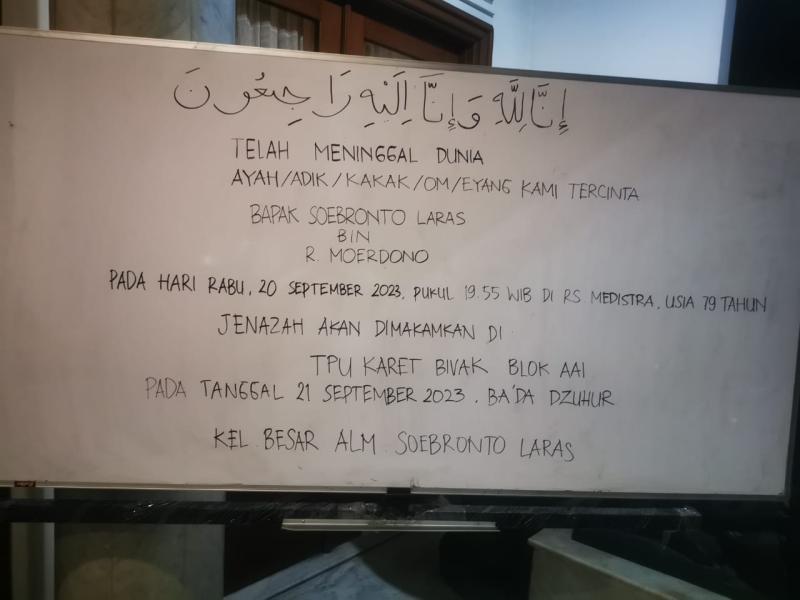 إِنَّا لِلَّهِ وَإِنَّا إِلَيْهِ رَاجِعُونَ
TELAH MENINGGAL DUNIA
AYAH/ADIK/KAKAK/OM/EYANG KAMI TERCINTA
BAPAK SOEBRONTO LARAS
BIN
R. MOERDONO
PADA HARI RABU, 20 SEPTEMBER 2023, PUKUL 19.55 WIB DI RS MEDISTRA, USIA 79 TAHUN
JENAZAH AKAN DIMAKAMKAN DI
TPU KARET BIVAK BLOK AAI
PADA TANGGAL 21 SEPTEMBER 2023, BA'DA DZUHUR
KEL BESAR ALM. SOEBRONTO LARAS